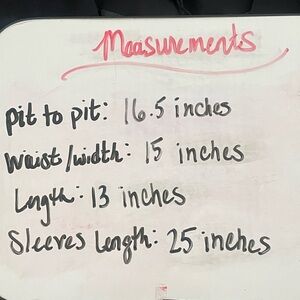 Measurements
pit to pit: 16.5 inches
waist/width: 15 inches
Length: 13 inches
Sleeves Length: 25 inches